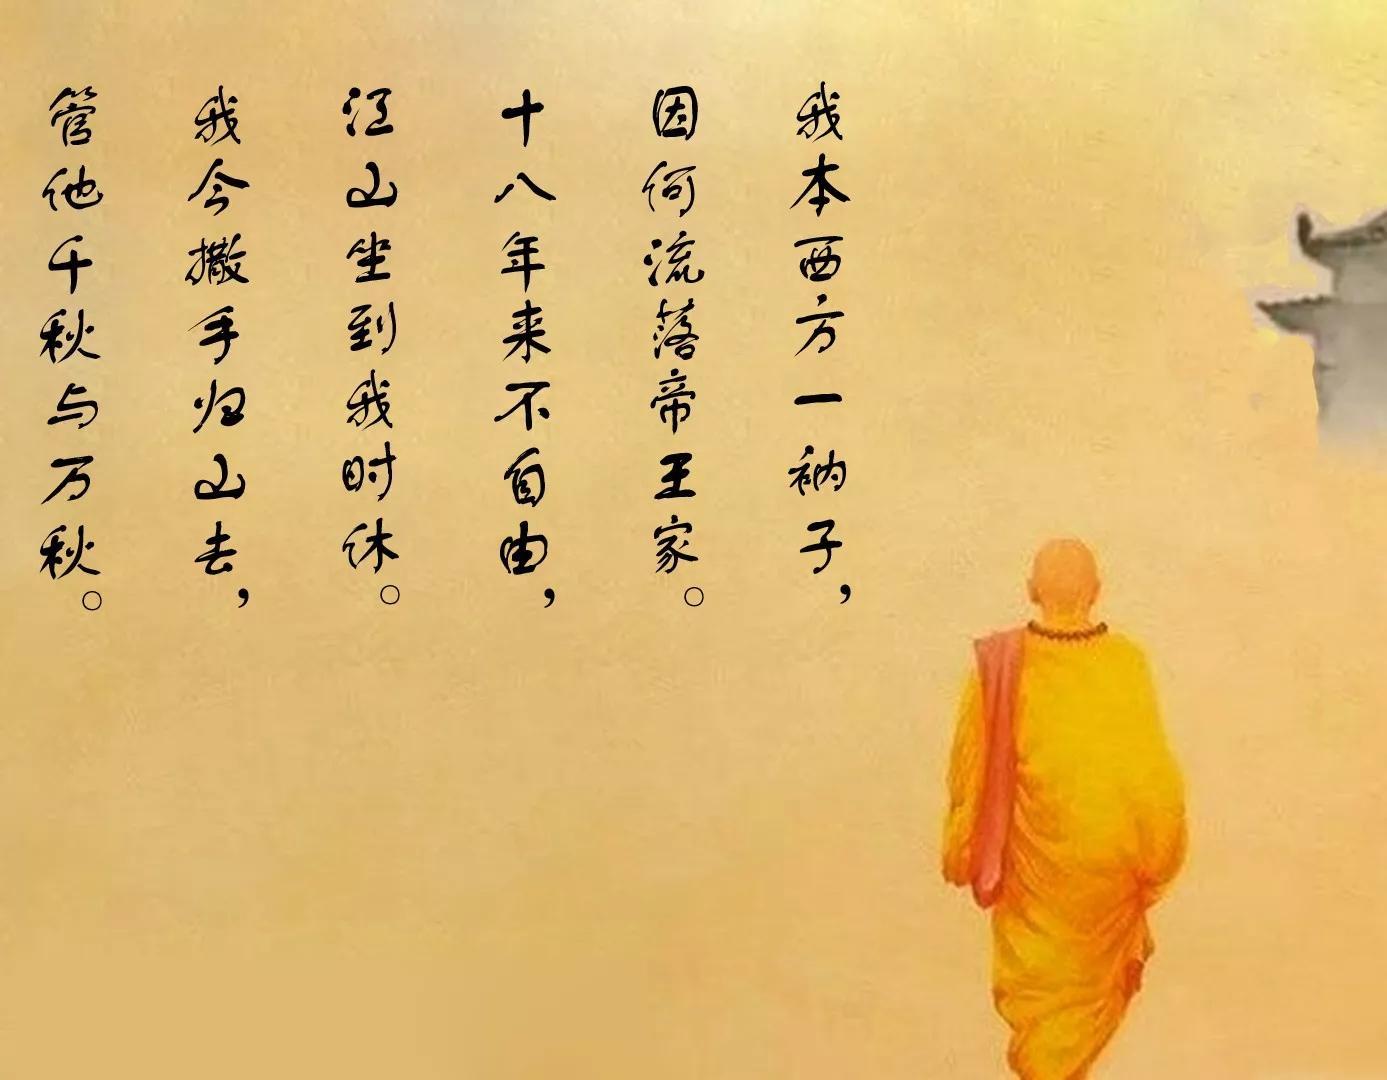 我本西方一衲子，
因何流落帝王家。
十八年来不自由，
江山坐到我时休。
我今撒手归山去，
管他千秋与万秋。